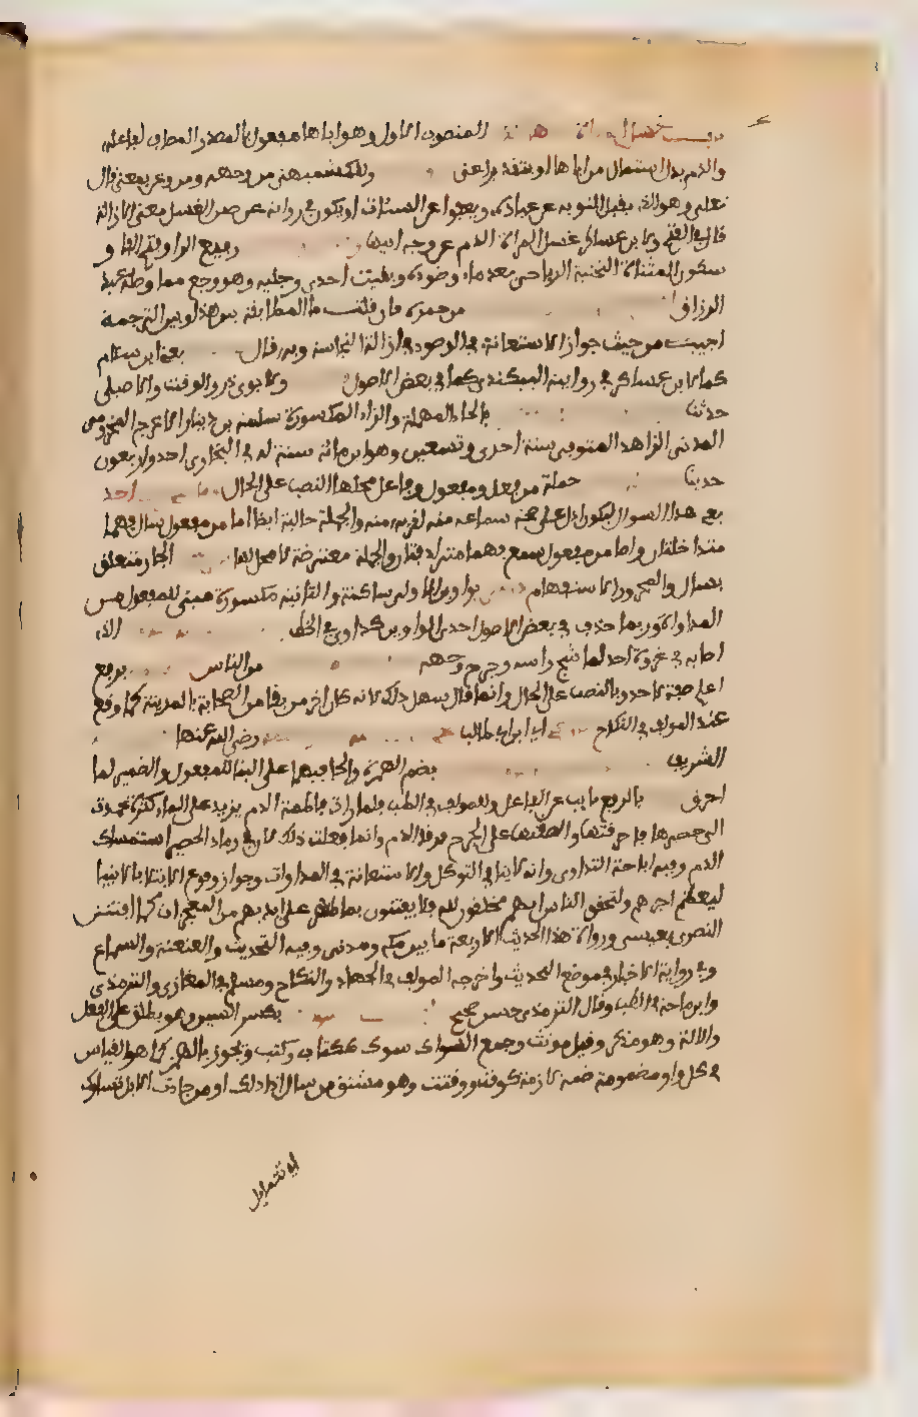 باب غسل المراة المنصوب الاول وهو اباها مفعول بالمصدر المضاف لفاعله
والدم بدل اشتمال من اباها او بتقدير اعنى ولكشميهنى من وجهه ومن وعن بمعنى قال
تعلى وهو الذى يقبل التوبة عن عباده ويعفوا عن السيئات او يكون فى رواية عن ضمن الغسل معنى الازالة
قال فى الفتح ولابن عساكر غسل المراة الدم عن وجه ابيها رفيع الراء وفتح الفاء و
سكون المثناة التحتية الرياحى بعدما وضوه وبقيت احدى رجليه وهو وجع مما وصله عبد
الرزاق من حمرة فان قلت ما المطابقة بين هذا وبين الترجمة
اجيب من حيث جواز الاستعانة فى الوضوء وازالة النجاسة وبه قال يعنى ابن سلام
كما لابن عساكر فى رواية البيكندى كما فى بعض الاصول ولابوى ذر والوقت والاصيلى
حدثنا بالحاء المهملة والزاء المكسورة سلمة بن دينار الاعرج المخزومى
المدنى الزاهد المتوفى سنة احدى وتسعين وهو ابن مائة سنة له فى البخارى احد ولاربعون
حديثا جملة من فعل ومفعول وفاعل محلها النصب على الحال احد
يعنى هذا السوال ليكون ادل على صحة سماعه منه لقربه منه والجملة حالية ايضا اما من مفعول سال فهما
متداخلتان واما من مفعول سمع فهما مترادفتان والجملة معترضة لا محل لها الجار متعلق
بسال والمجرور للاستفهام بواوين الاولى ساكنة والثانية مكسورة مبنى للمفعول من
المداواة وربما حذف فى بعض الاصول احدى الواوين كداود فى الخط الذى
اصابه فى غزوة احد لما شج راسه وجرح وجهه من الناس برفع
اعلم صفة لاحد وبالنصب على الحال وانما قال سهل ذلك لانه كان اخر من بقى من الصحابة بالمدينة كما وقع
عند المولف فى النكاح اى ابن ابى طالب رضى الله عنها
الشريف بضم الهمزة والحاء فيهما على البنا للمفعول والضمير لما
احرق بالرفع نايب عن الفاعل وللمولف فى الطب فلما رات فاطمة الدم يزيد على الماء كثرة عمدت
الى حصير فاحرقتها والصقتها على الجرح فرقا الدم وانما فعلت ذلك لان فى رماد الحصير استمساك
الدم وفيه اباحة التداوى وانه لا ينافى التوكل والاستعانة فى المداوات وجواز وقوع الابتلا بالانبيا
ليعظم اجرهم وليتحقق الناس انهم مخلوقون لله فلا يفتنون بما ظهر على ايديهم من المعجزات كما افتتن
النصرى بعيسى ورواة هذا الحديث الاربعة ما بين مكى ومدنى وفيه التحديث والعنعنة والسماع
وفى رواية الاخبار فى موضع التحديث واخرجه المولف فى الجهاد والنكاح ومسلم فى المغازى والترمذى
وابن ماجة فى الطب وقال الترمذى حسن صحيح بكسر السين وهو يطلق على الفعل
والالة وهو مذكر وقيل مونث وجمع السواك سوك ككتاب وكتب ويجوز بالهمز كما هو القياس
فى كل واو مضمومة ضمة لازمة كوقتت واقتت وهو مشتق من ساك اذا دلك او من جاءت الابل تتساوك